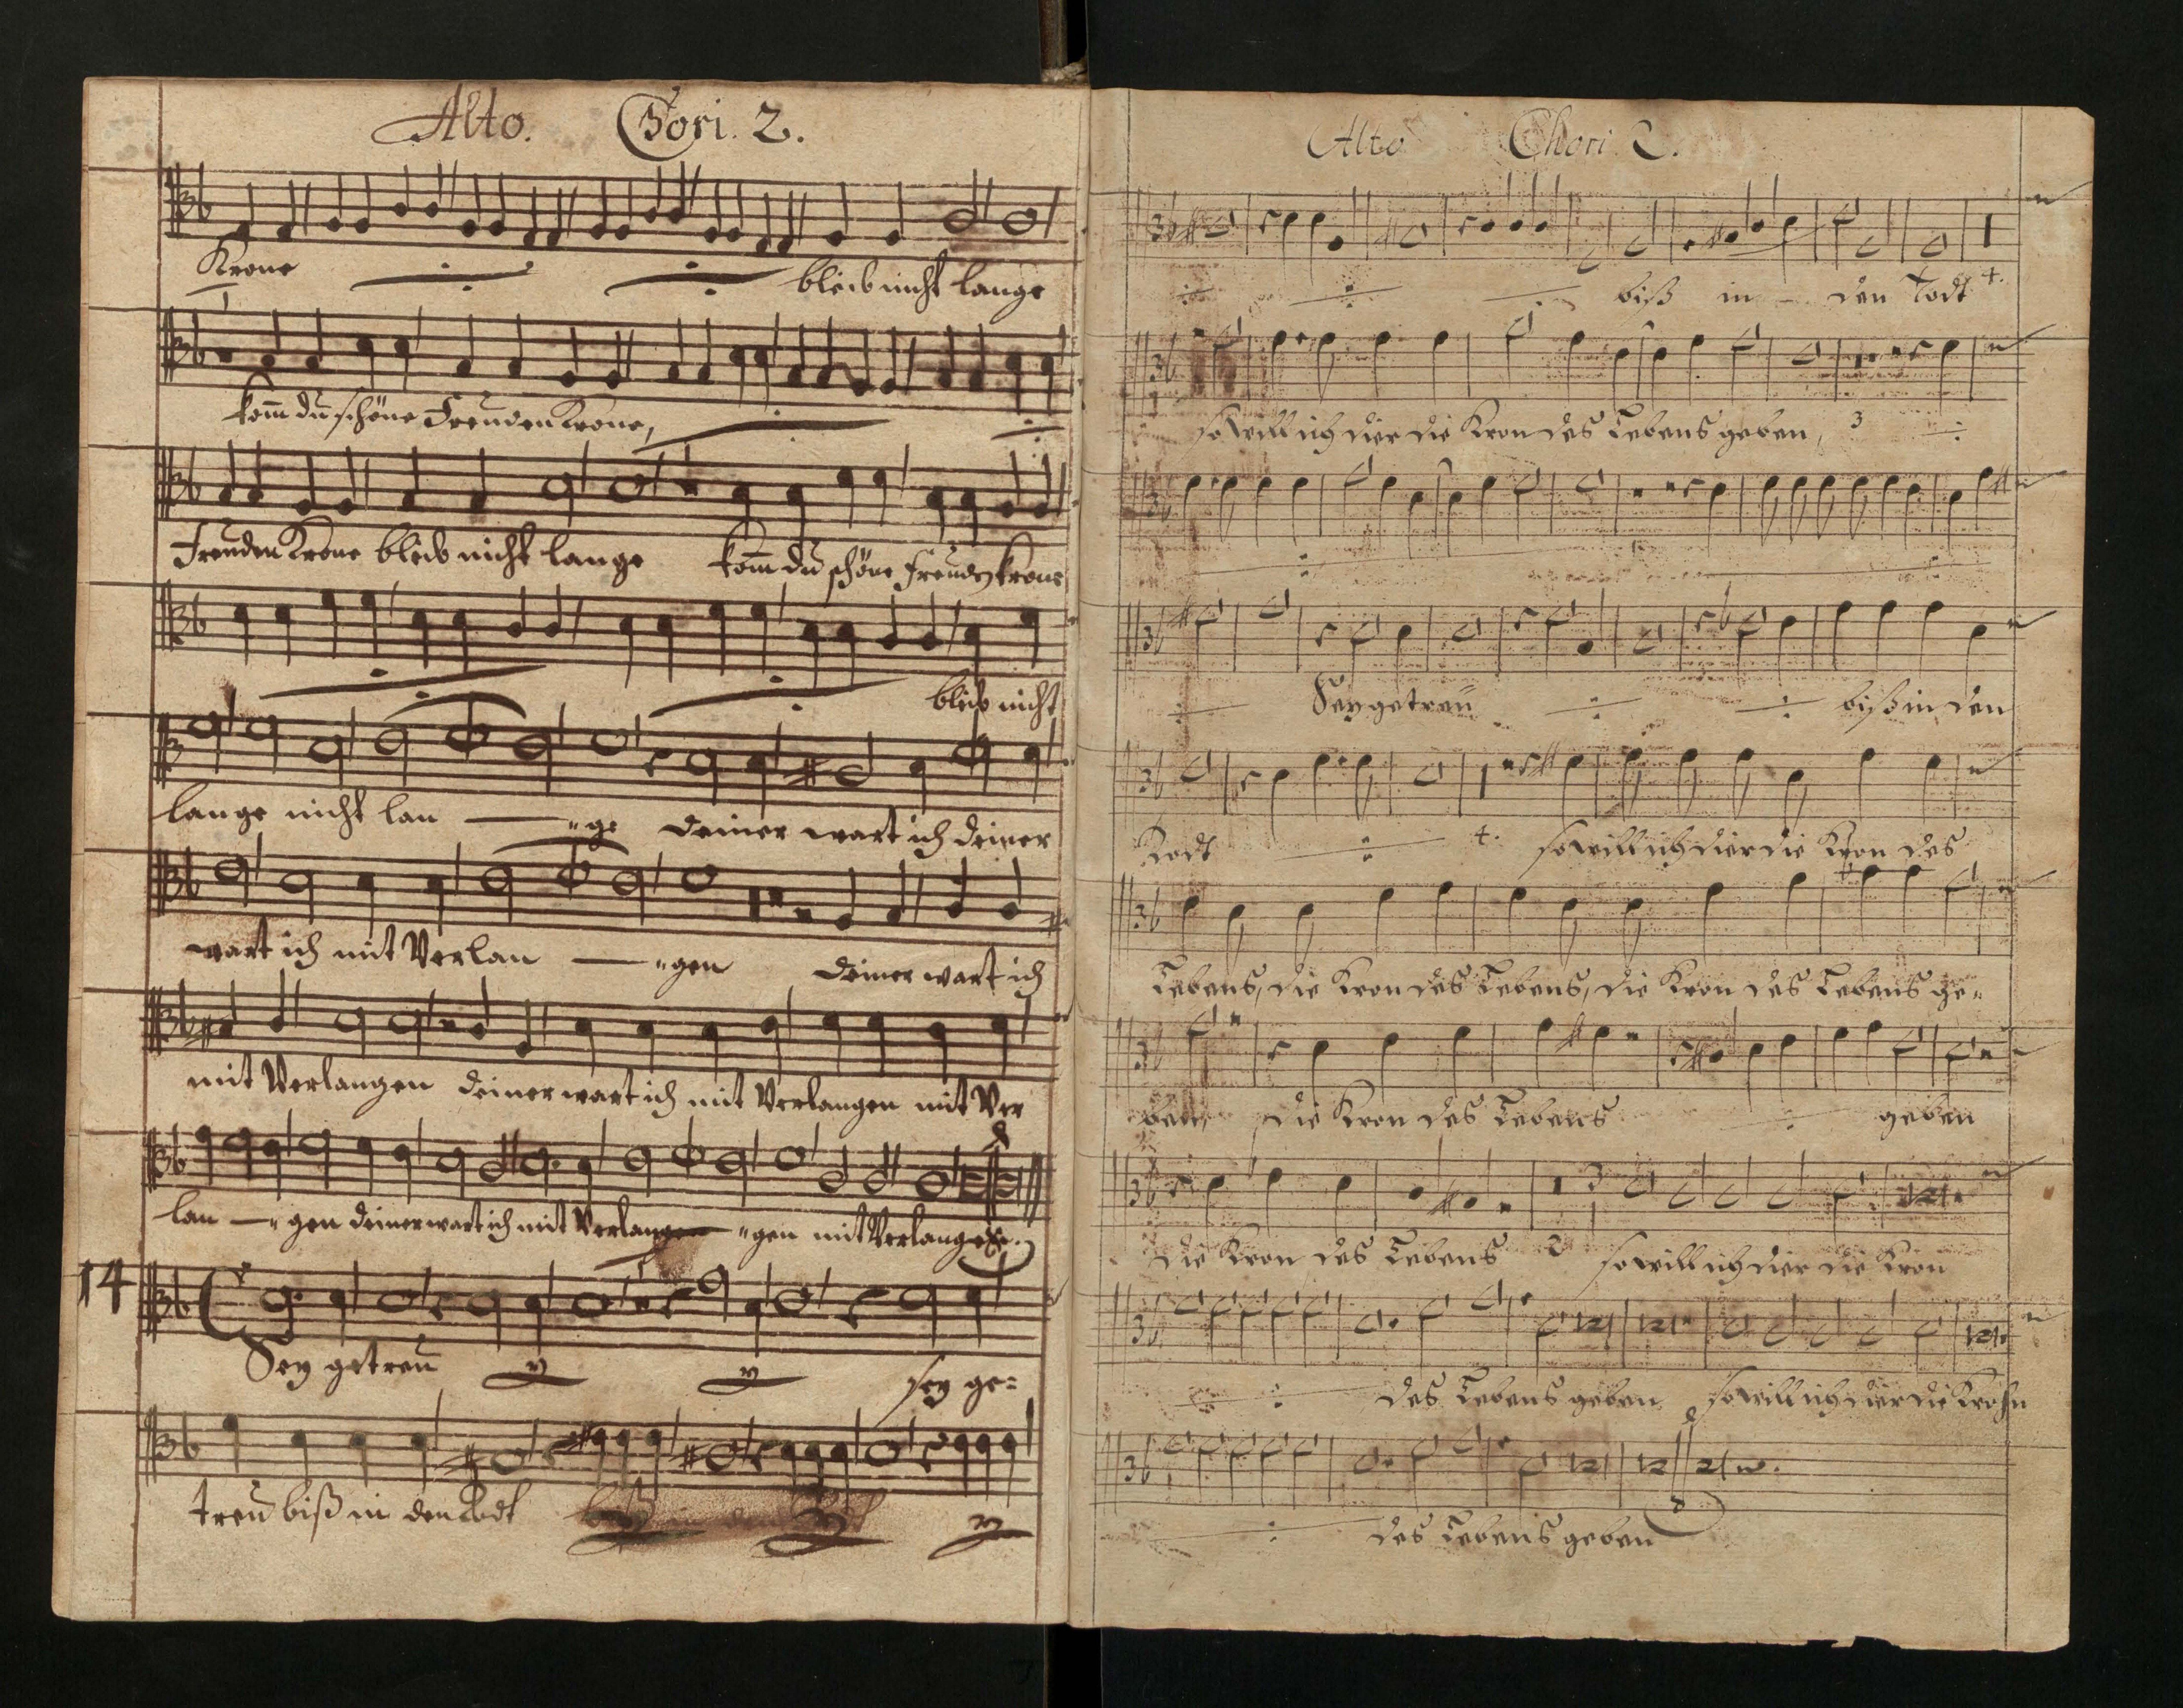 Alto. Cori. 2.
Krone bleib nicht lange
kom̄ du schöne Freuden Krone,
Freuden Krone bleib nicht lange kom̄ du schöne Freuden krone
bleib nicht
lange nicht lan ge deiner wart ich deiner
wart ich mit Verlan gen deiner wart ich
mit Verlangen deiner wart ich mit Verlangen mit Ver
lan gen deiner wart ich mit Verlan gen mit Verlangen.
14
Sey getreu sey ge=
treu biß in den Todt
Alto Chori 2.
biß in den Todt
so will ich dier die Kron des Lebens geben, 3
Sey getreu biß in den
Todt 4. so will ich dier die Kron des
Lebens, die Kron des Lebens, die Kron des Lebens ge=
ben, die Kron des Lebens geben
die Kron des Lebens 2 so will ich dier die Kron
des Lebens geben so will ich dier die Krohn
des Lebens geben